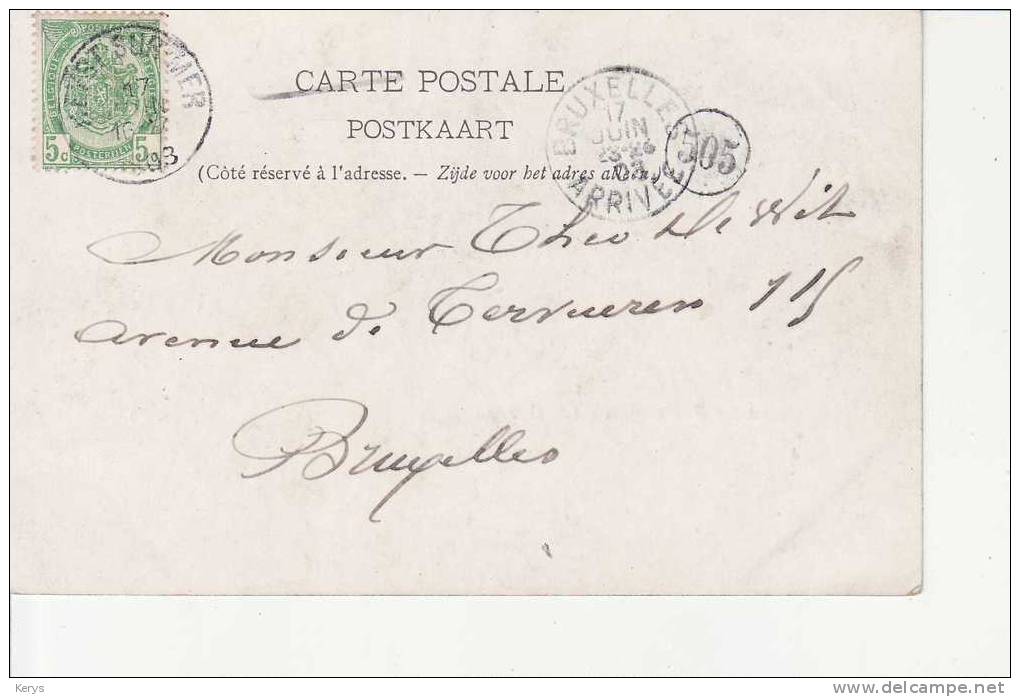 HEYST SUR MER
17
03
BELGIQUE
POSTERIJEN
5c 5c
CARTE POSTALE
POSTKAART
(Côté réservé à l'adresse. — Zijde voor het adres alleen.)
BRUXELLES
17
JUIN
ARRIVÉE
505
Monsieur Theo De Wit
avenue de Tervueren 115
Bruxelles
Kerys
www.delcampe.net